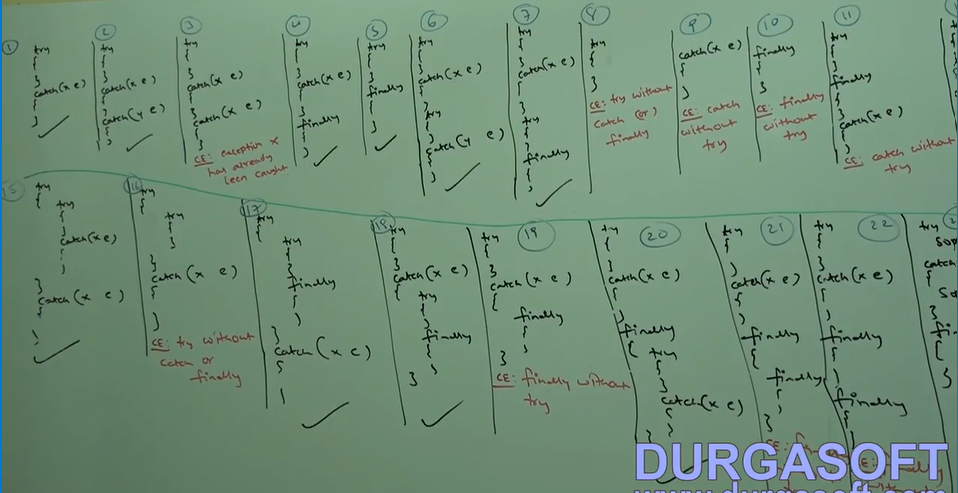 1
try
{
}
catch(x e)
{
}
2
try
{
}
catch(x e)
{
}
catch(y e)
{
}
3
try
{
}
catch(x e)
{
}
catch(x e)
{
}
CE: exception x
has already
been caught
4
try
{
}
catch(x e)
{
}
finally
{
}
5
try
{
}
finally
{
}
6
try
{
}
catch(x e)
{
}
try
{
}
catch(y e)
{
}
7
try
{
}
catch(x e)
{
}
try
{
}
finally
{
}
8
try
{
}
CE: try without
catch (or)
finally
9
catch(x e)
{
}
CE: catch
without
try
10
finally
{
}
CE: finally
without
try
11
try
{
}
finally
{
}
catch(x e)
{
}
CE: catch without
try
15
try
{
try
{
}
catch(x e)
{
}
}
catch(x e)
{
}
16
try
{
try
{
}
}
catch(x e)
{
}
CE: try without
catch or
finally
17
try
{
try
{
}
finally
{
}
}
catch(x e)
{
}
18
try
{
}
catch(x e)
{
try
{
}
finally
{
}
}
19
try
{
}
catch(x e)
{
finally
{
}
}
CE: finally without
try
20
try
{
}
catch(x e)
{
}
finally
{
try
{
}
catch(x e)
{
}
}
21
try
{
}
catch(x e)
{
}
finally
{
finally
{
}
}
CE:
22
try
{
}
catch(x e)
{
}
finally
{
}
finally
{
}
CE: finally
try
{
sop
}
catch
{
so
}
fin
{
}
DURGASOFT
www.durgasoft.com